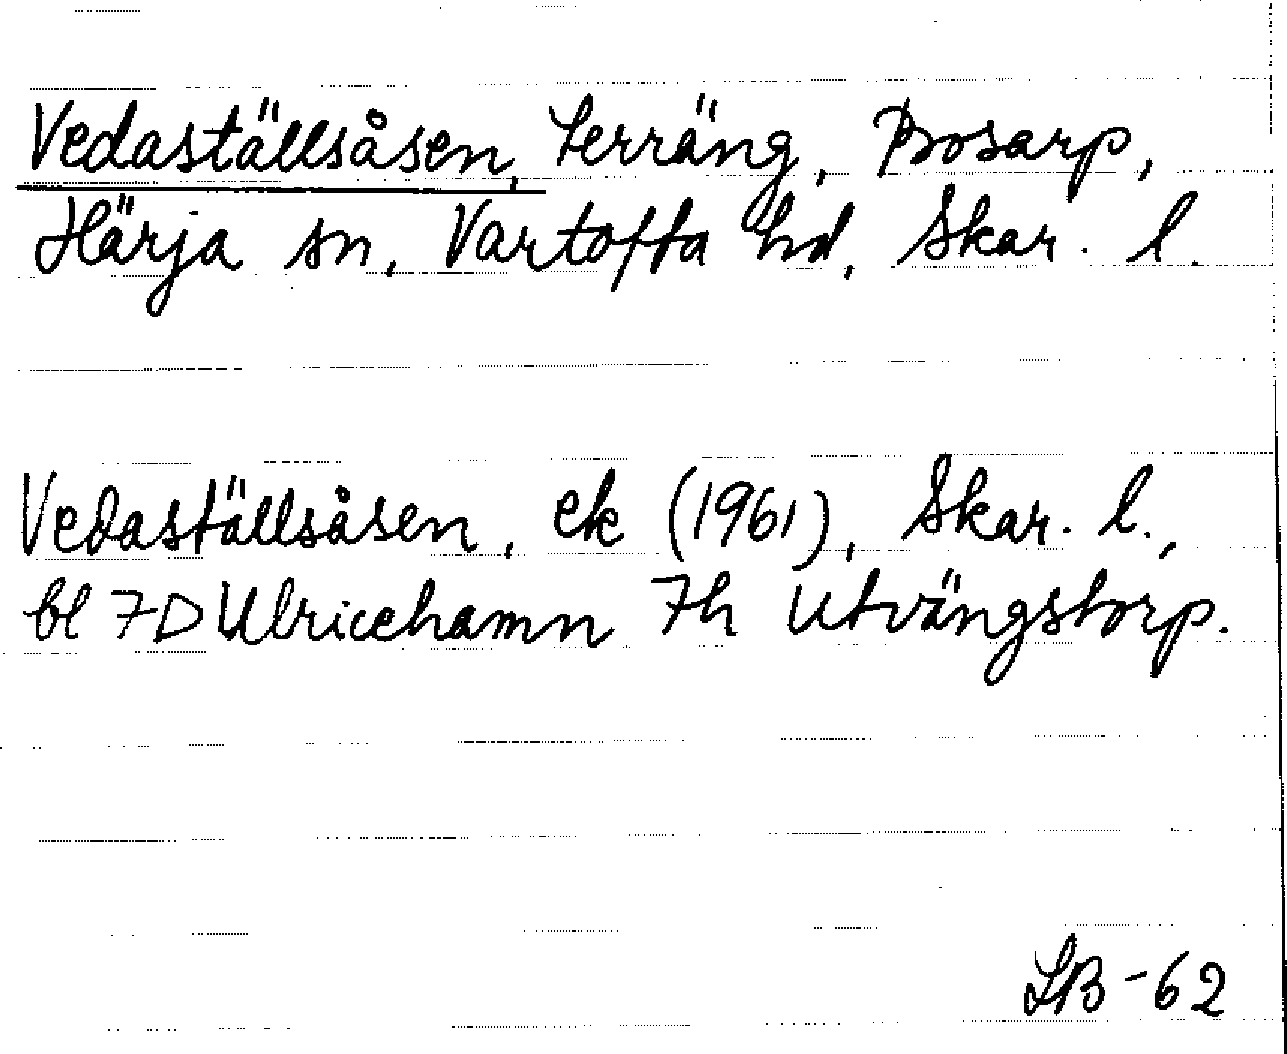 Vedaställsåsen, terräng, Bosarp,
Härja sn, Vartofta hd, Skar. l.
Vedaställsåsen, ek (1961), Skar. l.,
bl 7D Ulricehamn 7h Utvängstorp.
LB-62